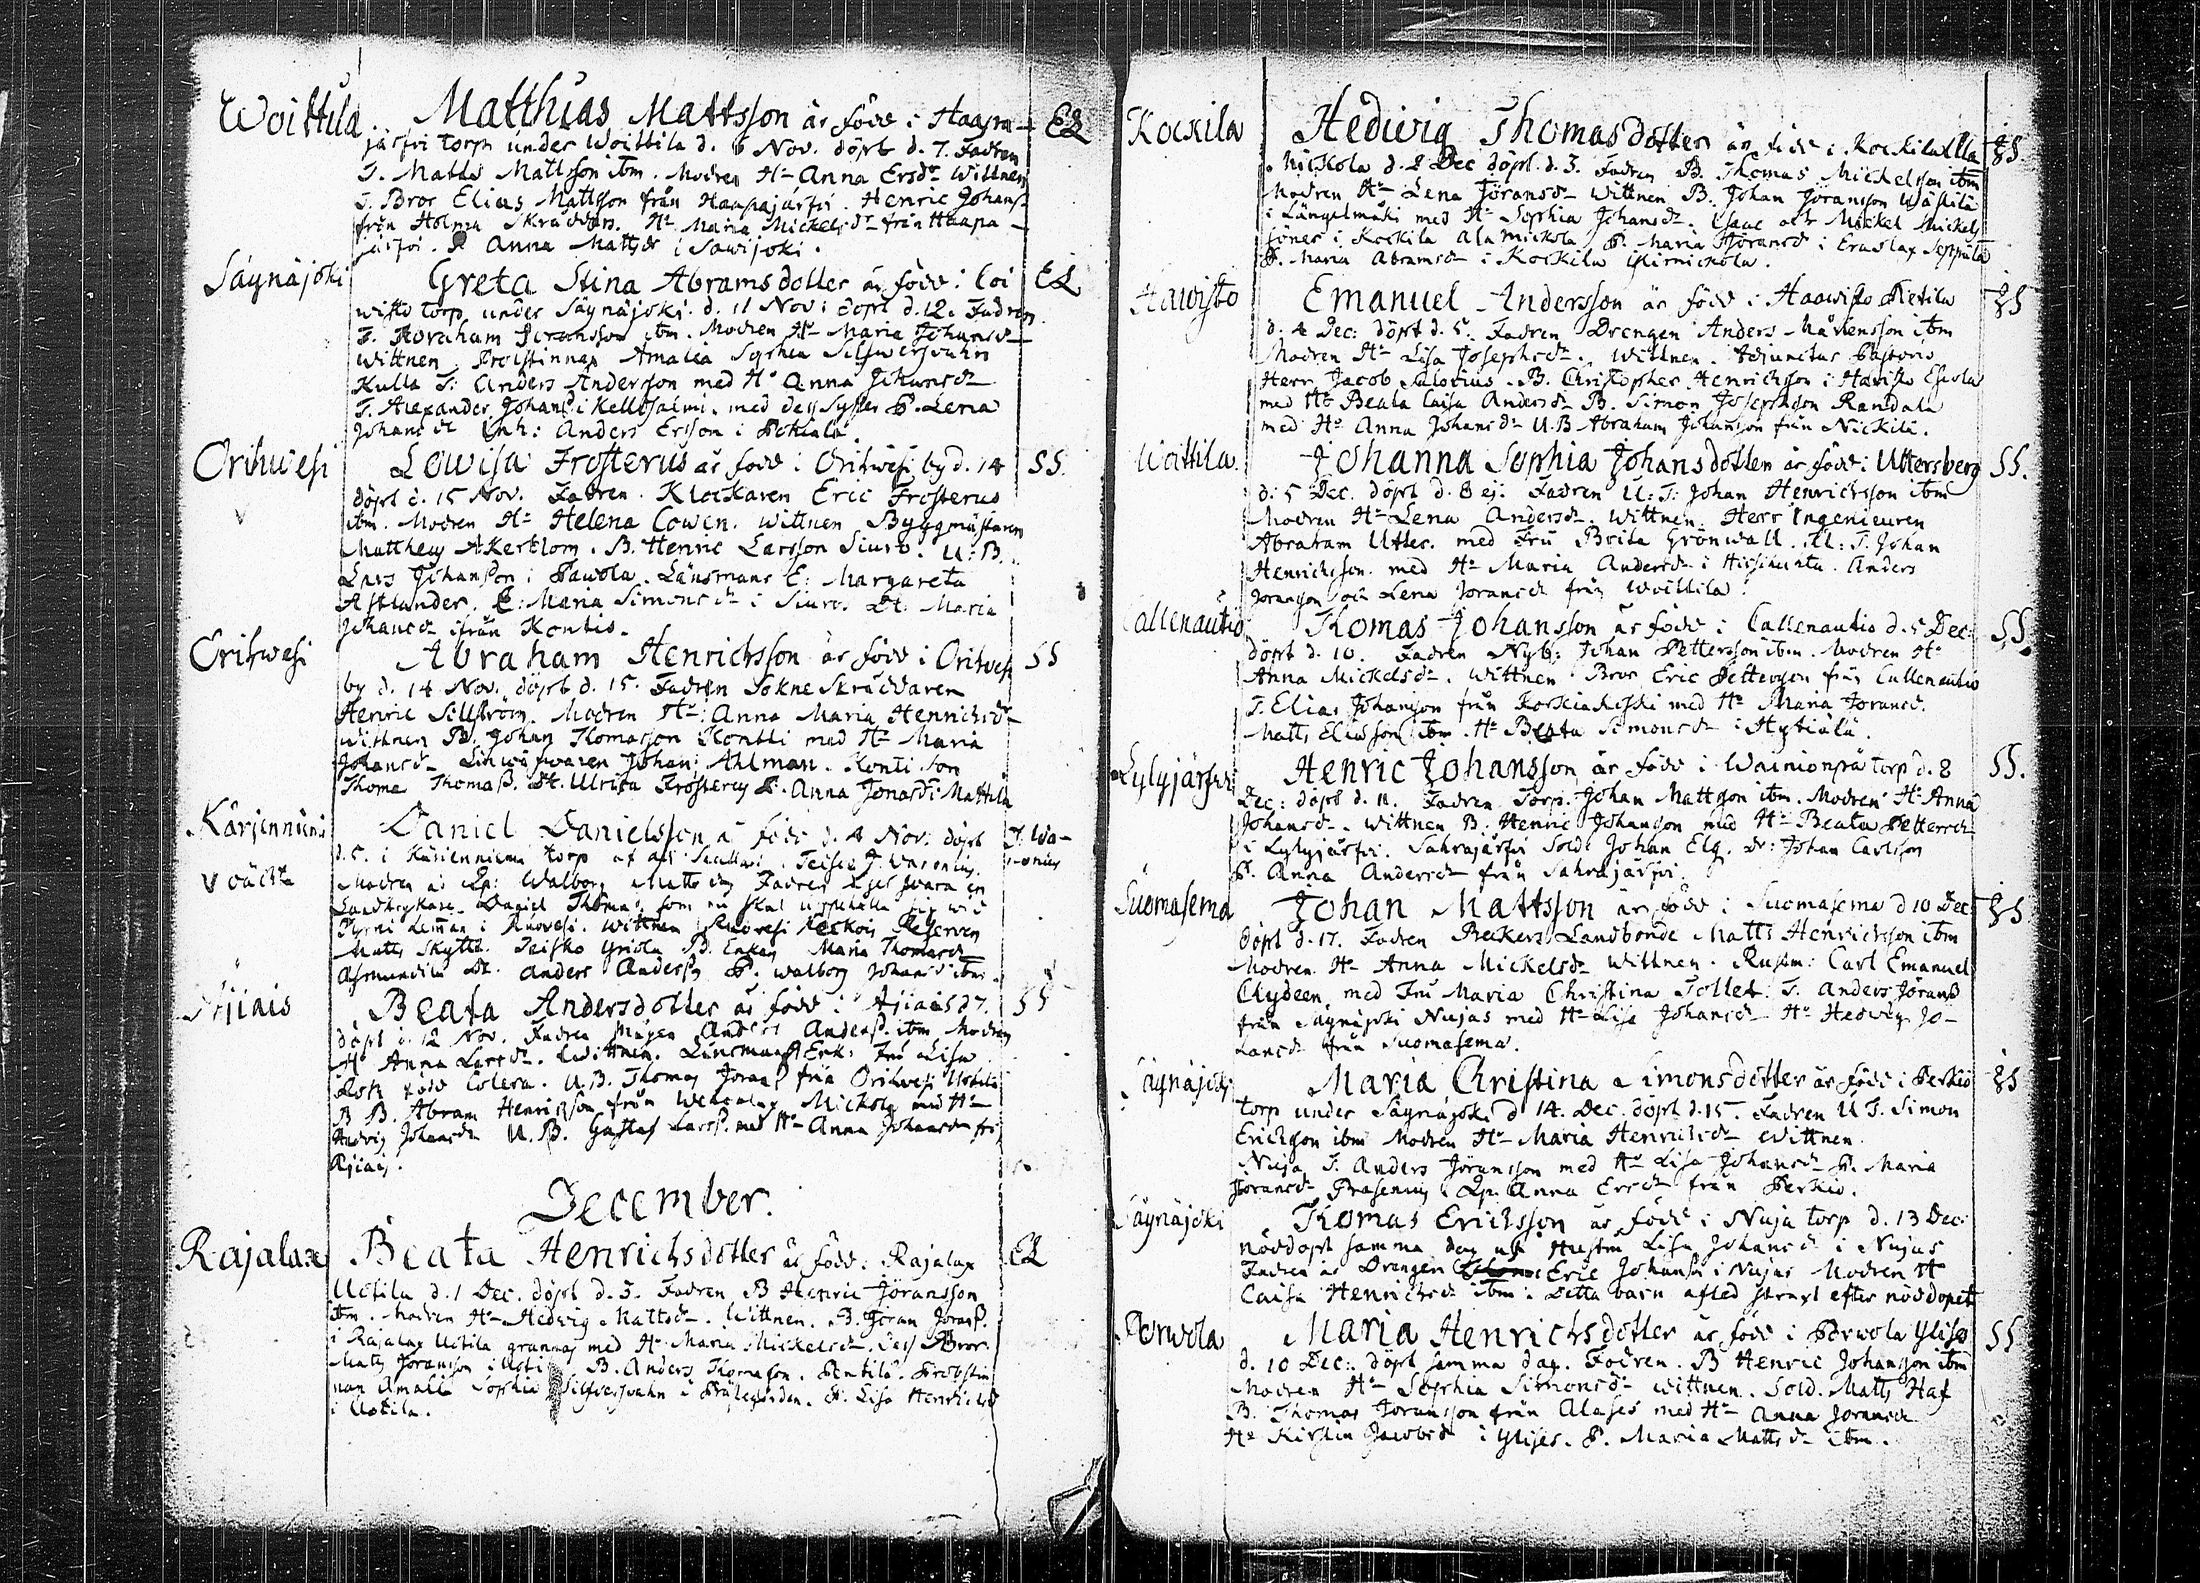 Woittila Matthias Mattsson är född i Haapa- EL
järfvi torp under Woittila d. 6 Nov. döpt d. 7. Fadren
T. Matts Mattsson ibm. Modren Hu Anna Ersdr Wittnen
T. Bror Elias Mattson från Haapajärfvi. Henric Johanss.
från Holma Skräddars. Hu Maria Mickelsdr från Haapa-
järfvi. P. Anna Mattsdr i Sawijoki.
Säynäjoki Greta Stina Abramsdotter är född i Loi EL
wisto torp under Säynäjoki. d. 11 Nov: döpt d. 12. Fadren
T. Abraham Joransson ibm. Modren Hu Maria Johansdr
wittnen Probstinnan Amalia Sophia Silfwersvahn
Kulla T: Anders Andersson med Hu Anna Johansdr
T. Alexander Johans. i Kelltsalmi. med dess Syster P. Lena
Johansdr Inh: Anders Ersson i Pohiala.
Orihwesi Lowisa Frosterus är född i Orihwesi by d. 14 SS.
döpt d. 15 Nov. Fadren Klockaren Eric Frosterus
ibm. Modren Hu Helena Cowen. Wittnen Byggmästaren
Mattheus Åkerblom. B. Henric Larsson Siuro. U: B.
Lars Johansson i Pawola. Länsmans E: Margareta
Astlander. E: Maria Simonsdr i Siuro. Dt. Maria
Johansdr ifrån Kontis.
Orihwesi Abraham Henrichsson är född i Orihwesi SS
by d. 14 Nov. döpt d. 15. Fadren Sokne Skräddaren
Henric Sillström. Modren Hu: Anna Maria Henrichsdr
wittnen B. Johan Thomasson Kontti med Hu Maria
Johansdr Linwäfwaren Johan Ahlman. Konti Son
Thomas Thomas. Dt. Ulrica Frosterus P. Anna Jonasd: Mattila
Kärjenniemi Daniel Danielsson är född d. 4 Nov. döpt J. Wa-
d. 5. i Kärienniemi torp af J. Waronius. ronius
Modren är Walborg Matts dr Fadren säges wara en
Landstrykare Daniel Thomas. som nu skal uppehålla sig wid
i Ruovesi. Wittnen Ruovesi
Matts Skytte. Maria Thomasdr
Dt. Anders Anderss. P. Walborg Johansd ibm.
Ajiais Beata Andersdotter är född i Ajiais d 7. SS
döpt d. 12 Nov. Fadren Mågen Anders Anderss. ibm Modren
Hu Anna Larsdr. Wittnen. Länsmans Erk: Fru Lisa
född Colera. U. B. Thomas Jorans från Orihwesi Uotila
B. Abram Henricsson från Mickola med Hu
Hedvig Johansdr U. B. Gustaf Larss. med Hu Anna Johansdr frå
Ajiais.
December.
Rajalax Beata Henrichsdotter är född i Rajalax EL
Uotila d. 1 Dec. döpt d. 3. Fadren B Henric Jöransson
ibm. Modren Hu Hedwig Mattsdr. Wittnen. B. Jöran Jorass.
i Rajalax Uotila grannas med Hu Maria Mickelsdr. dess Bror
Mats Joransson i Uotila B. Anders Thomasson. Pentilä. Probstin
nan Amalia Sophia Silfversvahn i Prästegården. P. Lisa Henrichsd
i Uotila.
Kockila Hedwig Thomasdotter är född i Kockila Ala SS
Mickola d. 2 Dec döpt d. 3. Fadren B. Thomas Mickelsson ibm
Modren Hu Lena Jöransdr Wittnen B. Johan Jöransson Wästilä
i Längelmäki med Hu Sophia Johansdr. Isaac och Mickel Mickels
söner i Kockila Ala Mickola. P. Maria Jöransdr i Eraslax Seppälä
P. Maria Abramsdr i Kockila Ylimickola.
Hawisto Emanuel Andersson är född i Haawisto Pietila SS
d. 4 Dec: döpt d. 5. Fadren Drengen Anders Mårtensson ibm
Modren Hu Lisa Josephsdr. Wittnen. Adjunctus Pastoris
Herr Jacob Salovius. B. Christopher Henrichsson i Hawisto Eskola
med Hu Beata Caisa Andersdr B. Simon Josephsson Randala
med Hu Anna Johansdr U. B Abraham Johansson från Nickilä.
Woittila Johanna Sophia Johansdotter är född i Uttersberg SS.
d. 5 Dec. döpt d. 8 ej: Fadren U: T: Johan Henrichsson ibm
Modren Hu Lena Andersdr. Wittnen. Herr Ingenieuren
Abraham Utter. med Fru Brita Grönwall. T. Johan
Henrichsson. med Hu Maria Andersdr i Hirsikunta. Anders
Joransson och Lena Joransdr från Woittila.
Callenautio Thomas Johansson är född i Callenautio d. 5 Dec: SS.
döpt d. 10. Fadren Nyb: Johan Pettersson ibm. Modren Hu
Anna Mickelsdr. Wittnen Bror Eric Pettersson från Callenautio
T. Elias Johansson från Korkiakoski med Hu Maria Joransd.
Matts Eliasson ibm. Hu Beata Simonsdr i Hytiälä.
Lylyjärfvi Henric Johansson är född i Wainionpä torp d. 8 SS.
Dec: döpt d. 11. Fadren Torp. Johan Mattsson ibm. Modren Hu Anna
Johansdr. Wittnen B. Henric Johansson med Hu Beata Pettersdr
i Lylyjärfvi. Sahrajärfvi Sold: Johan Elg. Dr: Johan Carlsson
P. Anna Andersdr från Sahrajärfvi.
Suomasema Johan Mattsson är född i Suomasema d 10 Dec SS
döpt d. 17. Fadren Beckers Landbonde Matts Henricsson ibm
Modren Hu Anna Mickelsdr Wittnen. Rustm: Carl Emanuel
Clydeen med Fru Maria Christina Tollet. T. Anders Jöranss
från Säynäjoki Nujas med Hu Lisa Johansdr Hu Hedwig Jo-
hansdr från Suomasema.
Säynäjoki Maria Christina Simonsdotter är född i Perkiö SS
torp under Säynäjoki d 14. Dec. döpt d. 15. Fadren U T. Simon
Erichsson ibm Modren Hu Maria Henrichsdr Wittnen.
Nuja T. Anders Jöransson med Hu Lisa Johansdr P. Maria
Joransdr Anna Ersdr från Perkiö.
Säynäjoki Thomas Erichsson är född i Nuja torp d. 13 Dec:
nöddöpt samma dag af Hustru Lisa Johansdr i Nujas
Fadren är Drengen Eric Johanss i Nujas Modren Hu
Caisa Henrichsdr ibm. Detta barn afled strax efter nöddopet
Porwola Maria Henrichsdotter är född i Porwola Ylises SS
d. 10 Dec: döpt samma dag. Fadren. B Henric Johansson ibm
Modren Hu Sophia Simonsdr wittnen. Sold. Matts Haf
B. Thomas Joransson från Alases med Hu Anna Joransdr
Hu Kirstin Jacobsdr i Ylises. P. Maria Mattsdr ibm.